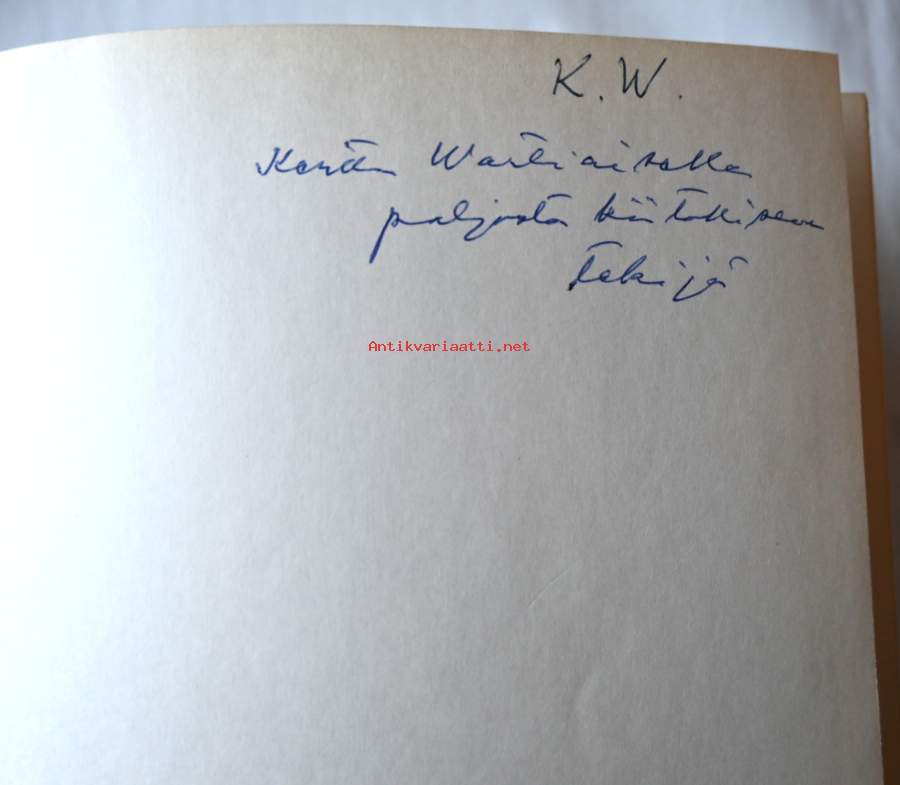 K. W.
Wartiaiselle
paljosta kiitokseen
tekijä
Antikvariaatti.net